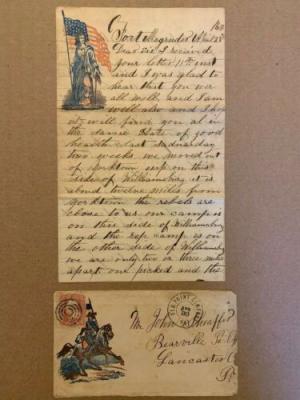 Fort Magruder
Dear Sir I received
your letter 11th inst
and I was glad to
hear that you wer
all well, and I am
well also and I hop
will find you al in
the same State of good
health last Wednesday
two weeks we moved out
of Yorktown up on this
side of Williamsburg it is
about twelve miles from
Yorktown the rebels are
close to us our camp is
on this side of Williamsburg
and the reb camp is on
the other side of
we are only two or three miles
apart our picked and the
OLD POINT COMFORT
Mr John
Lancaster Co
Pa